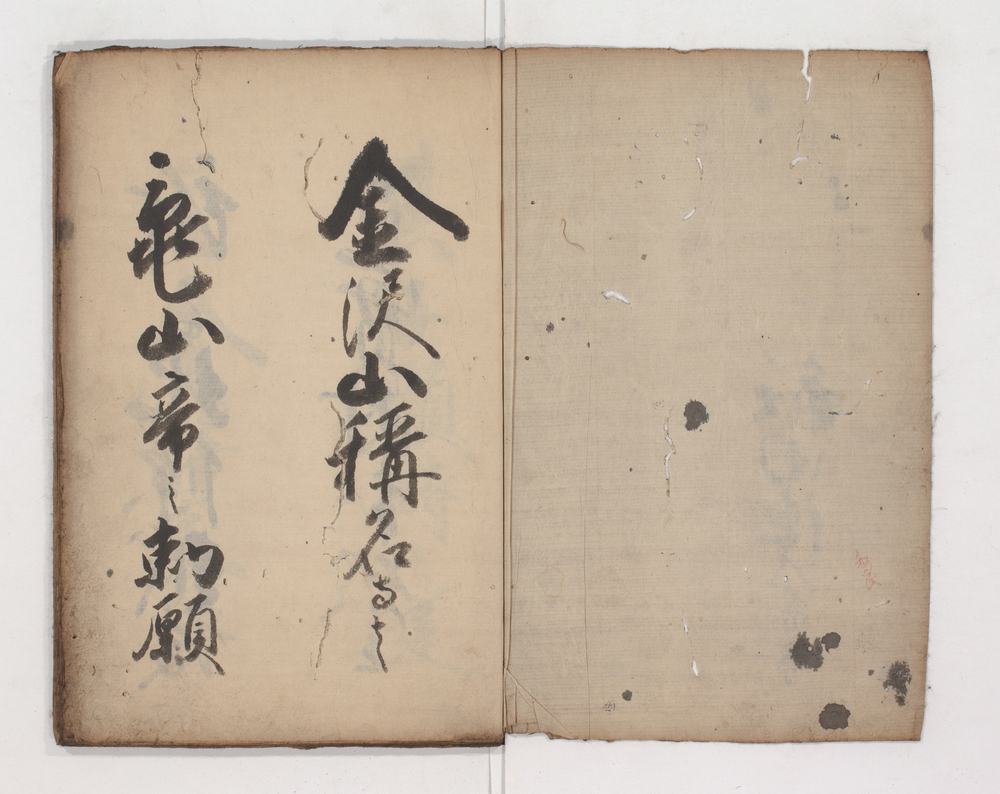 金沢山稱名寺者
亀山帝之勅願